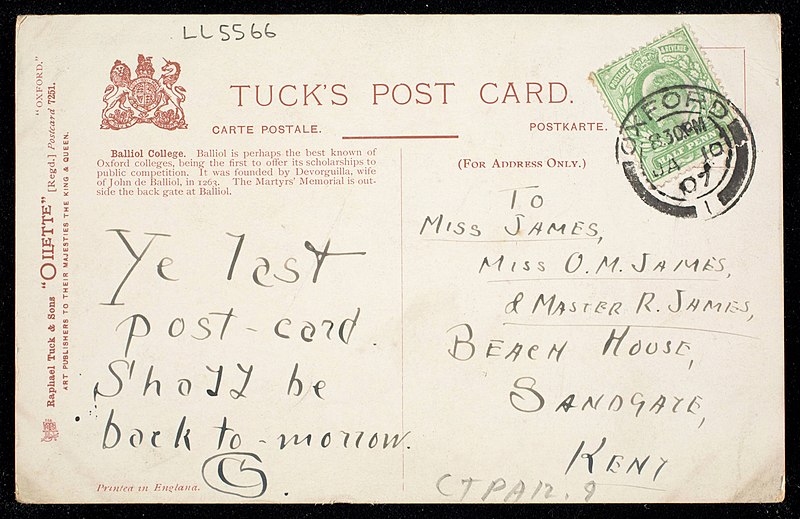 LL5566
TUCK'S POST CARD.
CARTE POSTALE.
POSTKARTE.
Balliol College. Balliol is perhaps the best known of
Oxford colleges, being the first to offer its scholarships to
public competition. It was founded by Devorguilla, wife
of John de Balliol, in 1263. The Martyrs' Memorial is out-
side the back gate at Balliol.
Ye last
post-card.
Shall be
back to-morrow.
G.
Printed in England.
(FOR ADDRESS ONLY.)
To
MISS JAMES,
MISS O. M. JAMES,
& MASTER R. JAMES,
BEACH HOUSE,
SANDGATE,
KENT
POSTAGE & REVENUE
HALF PENNY
OXFORD
8.30PM
JA 10
07
1
"OXFORD."
Raphael Tuck & Sons "OILETTE" [Regd.] Postcard 7251.
ART PUBLISHERS TO THEIR MAJESTIES THE KING & QUEEN.